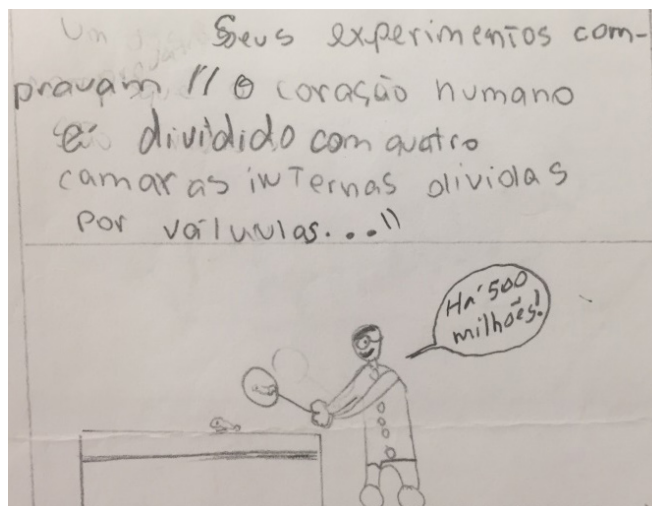 Um Seus experimentos com-
pravam "O coração humano
é dividido com quatro
camaras internas dividas
por válvulas..."
Há 500
milhões!